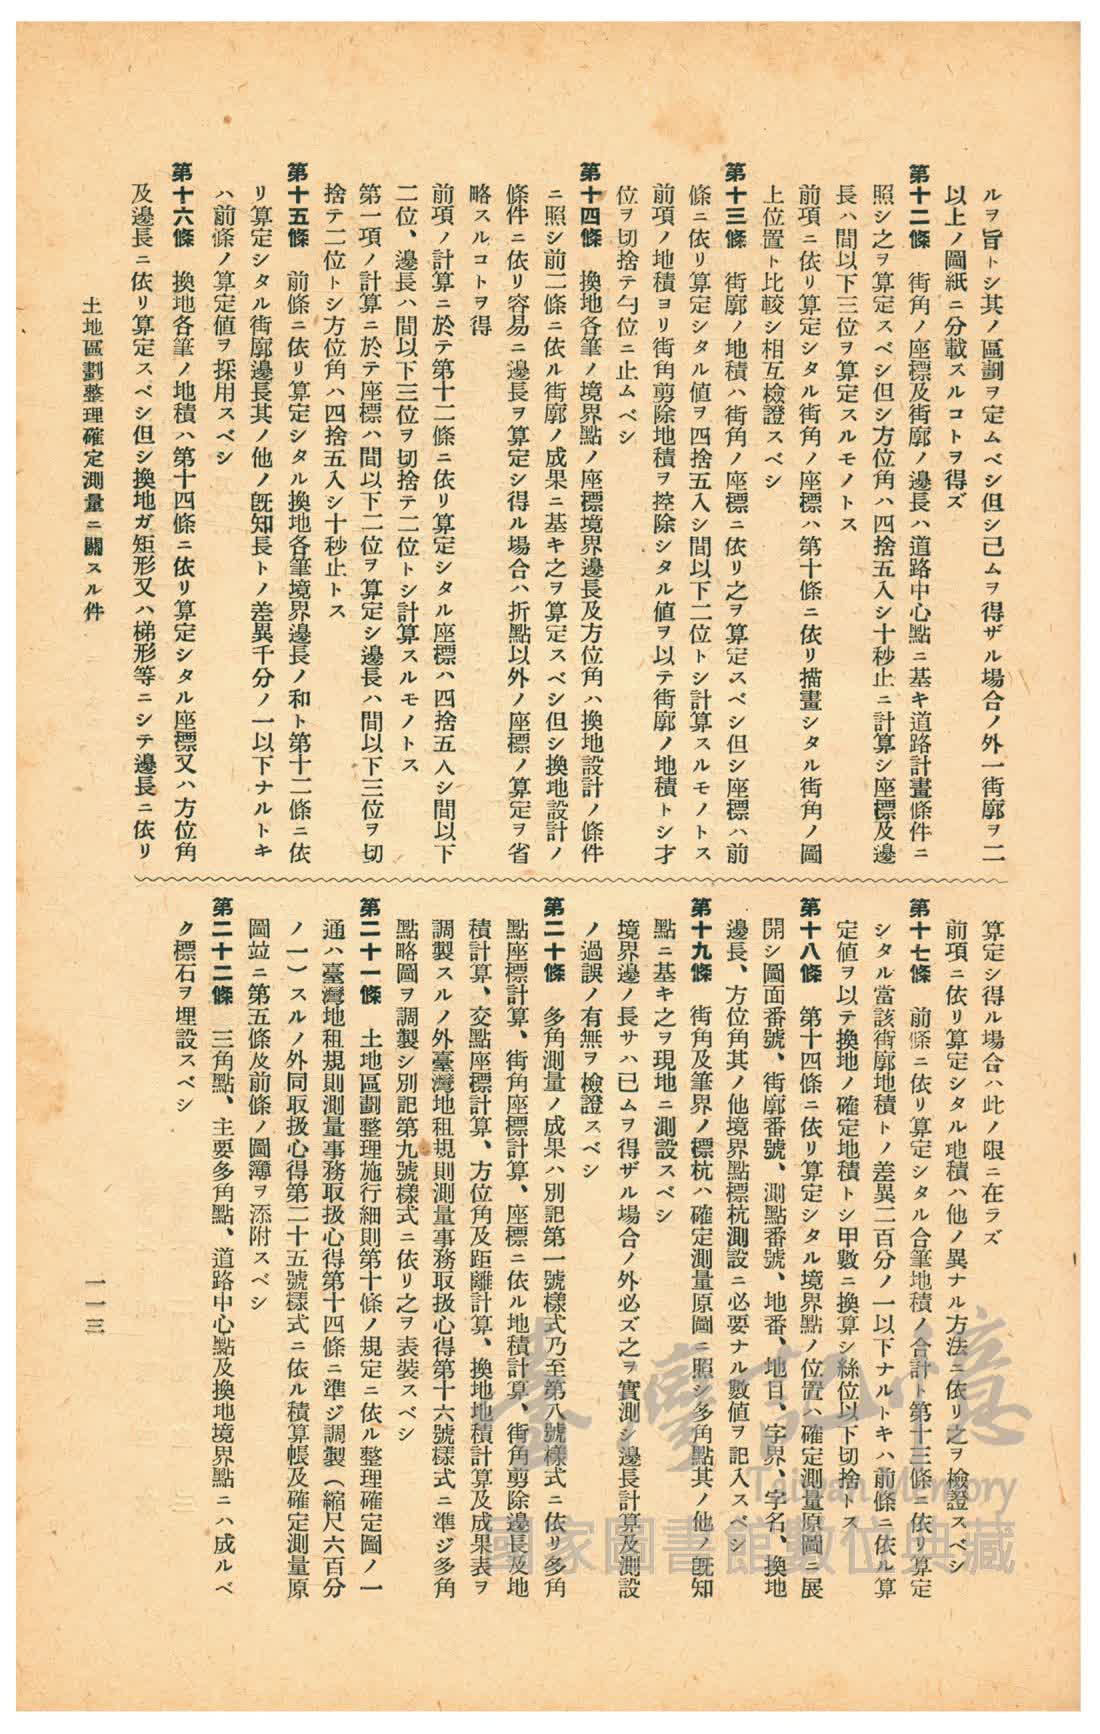 ルヲ旨トシ其ノ區劃ヲ定ムベシ但シ己ムヲ得ザル場合ノ外一街廓ヲ二
以上ノ圖紙ニ分載スルコトヲ得ズ
第十二條　街角ノ座標及街廓ノ邊長ハ道路中心點ニ基キ道路計畫條件ニ
照シ之ヲ算定スベシ但シ方位角ハ四捨五入シ十秒止ニ計算シ座標及邊
長ハ間以下三位ヲ算定スルモノトス
前項ニ依リ算定シタル街角ノ座標ハ第十條ニ依リ描畫シタル街角ノ圖
上位置ト比較シ相互檢證スベシ
第十三條　街廓ノ地積ハ街角ノ座標ニ依リ之ヲ算定スベシ但シ座標ハ前
條ニ依リ算定シタル値ヲ四捨五入シ間以下二位トシ計算スルモノトス
前項ノ地積ヨリ街角剪除地積ヲ控除シタル値ヲ以テ街廓ノ地積トシ才
位ヲ切捨テ勺位ニ止ムベシ
第十四條　換地各筆ノ境界點ノ座標境界邊長及方位角ハ換地設計ノ條件
ニ照シ前二條ニ依ル街廓ノ成果ニ基キ之ヲ算定スベシ但シ換地設計ノ
條件ニ依リ容易ニ邊長ヲ算定シ得ル場合ハ折點以外ノ座標ノ算定ヲ省
略スルコトヲ得
前項ノ計算ニ於テ第十二條ニ依リ算定シタル座標ハ四捨五入シ間以下
二位、邊長ハ間以下三位ヲ切捨テ二位トシ計算スルモノトス
第一項ノ計算ニ於テ座標ハ間以下二位ヲ算定シ邊長ハ間以下三位ヲ切
捨テ二位トシ方位角ハ四捨五入シ十秒止トス
第十五條　前條ニ依リ算定シタル換地各筆境界邊長ノ和ト第十二條ニ依
リ算定シタル街廓邊長其ノ他ノ旣知長トノ差異千分ノ一以下ナルトキ
ハ前條ノ算定値ヲ採用スベシ
第十六條　換地各筆ノ地積ハ第十四條ニ依リ算定シタル座標又ハ方位角
及邊長ニ依リ算定スベシ但シ換地ガ矩形又ハ梯形等ニシテ邊長ニ依リ
土地區劃整理確定測量ニ關スル件
算定シ得ル場合ハ此ノ限ニ在ラズ
前項ニ依リ算定シタル地積ハ他ノ異ナル方法ニ依リ之ヲ檢證スベシ
第十七條　前條ニ依リ算定シタル合筆地積ノ合計ト第十三條ニ依リ算定
シタル當該街廓地積トノ差異二百分ノ一以下ナルトキハ前條ニ依ル算
定値ヲ以テ換地ノ確定地積トシ甲數ニ換算シ絲位以下切捨トス
第十八條　第十四條ニ依リ算定シタル境界點ノ位置ハ確定測量原圖ニ展
開シ圖面番號、街廓番號、測點番號、地番、地目、字界、字名、換地
邊長、方位角其ノ他境界點標杭測設ニ必要ナル數値ヲ記入スベシ
第十九條　街角及筆界ノ標杭ハ確定測量原圖ニ照シ多角點其ノ他ノ旣知
點ニ基キ之ヲ現地ニ測設スベシ
境界邊ノ長サハ已ムヲ得ザル場合ノ外必ズ之ヲ實測シ邊長計算及測設
ノ過誤ノ有無ヲ檢證スベシ
第二十條　多角測量ノ成果ハ別記第一號樣式乃至第八號樣式ニ依リ多角
點座標計算、街角座標計算、座標ニ依ル地積計算、街角剪除邊長及地
積計算、交點座標計算、方位角及距離計算、換地地積計算及成果表ヲ
調製スルノ外臺灣地租規則測量事務取扱心得第十六號樣式ニ準ジ多角
點略圖ヲ調製シ別記第九號樣式ニ依リ之ヲ表裝スベシ
第二十一條　土地區劃整理施行細則第十條ノ規定ニ依ル整理確定圖ノ一
通ハ臺灣地租規則測量事務取扱心得第十四條ニ準ジ調製（縮尺六百分
ノ一）スルノ外同取扱心得第二十五號樣式ニ依ル積算帳及確定測量原
圖竝ニ第五條及前條ノ圖簿ヲ添附スベシ
第二十二條　三角點、主要多角點、道路中心點及換地境界點ニハ成ルベ
ク標石ヲ埋設スベシ
一一三
臺灣記憶
Taiwan Memory
國家圖書館數位典藏